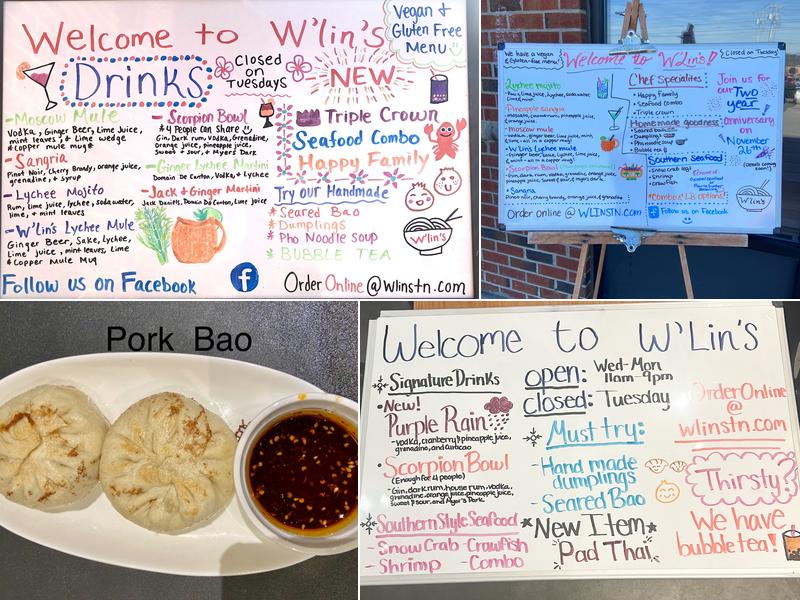 Welcome to W'lin's
Vegan &
Gluten Free
Menu
Drinks
Closed
on
Tuesdays
NEW
-Moscow Mule
Vodka, Ginger Beer, Lime Juice,
mint leaves, & Lime wedge
*copper mule mug*
-Sangria
Pinot Noir, Cherry Brandy, orange juice,
grenadine, & syrup
-Lychee Mojito
Rum, lime juice, lychee, soda water,
lime, & mint leaves
-W'lin's Lychee Mule
Ginger Beer, Sake, Lychee,
Lime juice, mint leaves, Lime
& Copper Mule Mug
-Scorpion Bowl
*4 People Can Share
Gin, Dark rum, Vodka, Grenadine,
orange juice, pineapple juice,
sweet & sour, & Myers Dark
-Ginger Lychee Martini
Domain De Canton, Vodka, & Lychee
-Jack & Ginger Martini
Jack Daniels, Domain De Canton, Lime juice
Triple Crown
Seafood Combo
Happy Family
Try our Handmade
*Seared Bao
*Dumplings
*Pho Noodle Soup
*BUBBLE TEA
W'lin's
Follow us on Facebook
f
Order Online @ Wlinstn.com
We have a vegan
& Gluten-free menu!
Welcome to W'Lin's!
Closed on Tuesday
Lychee mojito
Pineapple sangria
Moscow mule
W'Lin's Lychee mule
Scorpion Bowl
Sangria
Pinot Noir, cherry brandy, orange juice,
Order online @ WLINSTN.com
Chef Specialties
• Happy Family
• Seafood Combo
• Triple crown
Homemade goodness
• Seared Bao
• Dumplings
• Pho noodle soup
• Bubble tea
Southern Seafood
• Snow crab legs
• Shrimp
• Crawfish
*Combo & LB options*
Join us for
our Two
year
anniversary
on
November
26th
Follow us on Facebook
Pork Bao
Welcome to W'Lin's
Signature Drinks
• New!
Purple Rain
-vodka, cranberry & pineapple juice,
grenadine, and curacao
• Scorpion Bowl
(Enough for 4 people)
-Gin, dark rum, house rum, vodka,
grenadine, orange juice, pineapple juice,
sweet & sour, and Myer's Dark
Southern Style Seafood
- Snow Crab - Crawfish
- Shrimp - Combo
open: Wed-Mon
11am-9pm
closed: Tuesday
Must try:
- Hand made
dumplings
- Seared Bao
*New Item*
Pad Thai
Order Online
@
wlinstn.com
Thirsty?
We have
bubble tea!